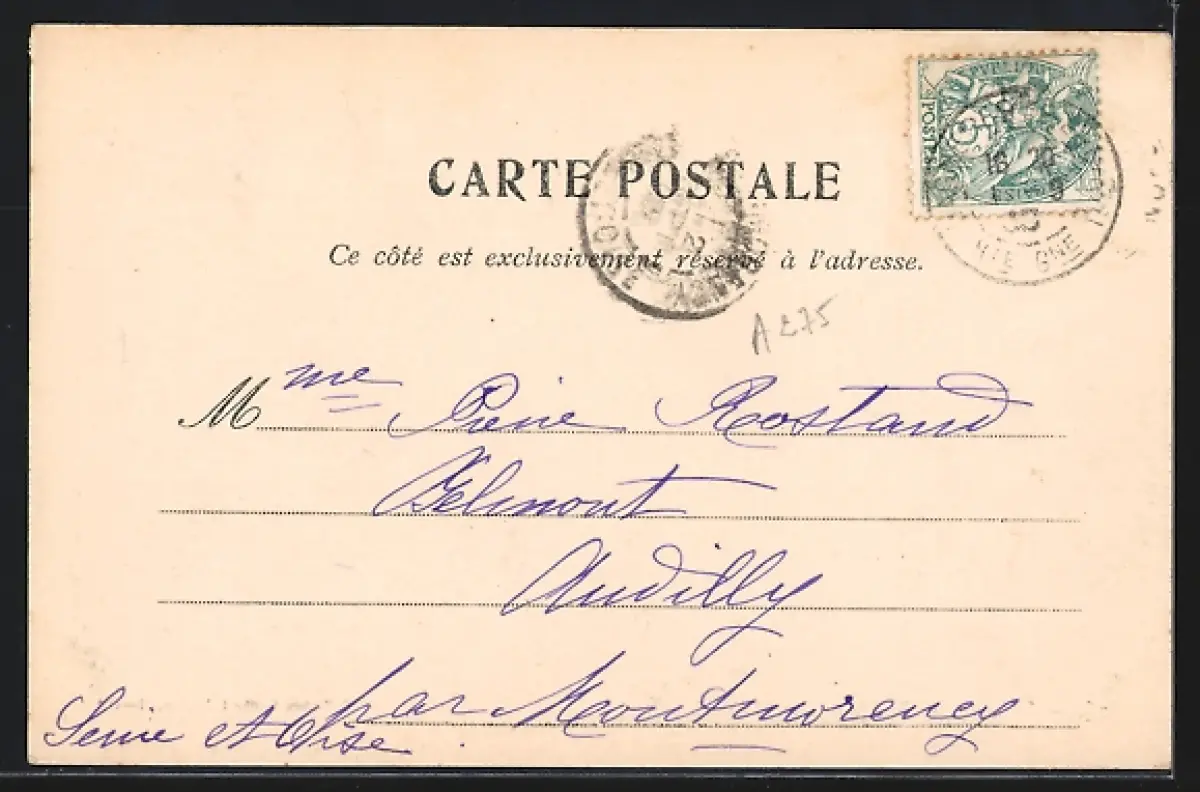 CARTE POSTALE
Ce côté est exclusivement réservé à l'adresse.
A 275
Mme Rostand
Belmont
Andilly
par Montmorency
Seine et Oise
POSTES
18
Hte GNE